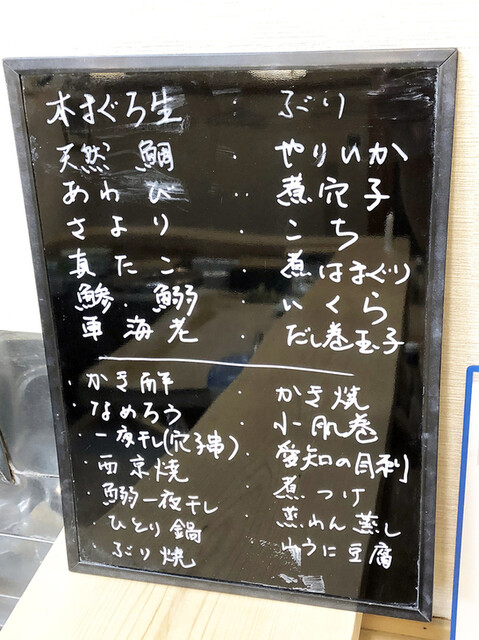 本まぐろ生 ・ ぶり
天然 鯛 ・ やりいか
あわび ・・ 煮穴子
さより ・ こち
真たこ ・ 煮はまぐり
鯵・鰯 ・ いくら
車海老 ・ だし巻玉子
・かき酢 ・ かき焼
なめろう ・ 小肌巻
・一夜干(穴子串) ・ 愛知の目利
・西京焼 ・ 煮つけ
・鰯一夜干し ・ 蒸わん蒸し
ひとり鍋 うに豆腐
ぶり焼